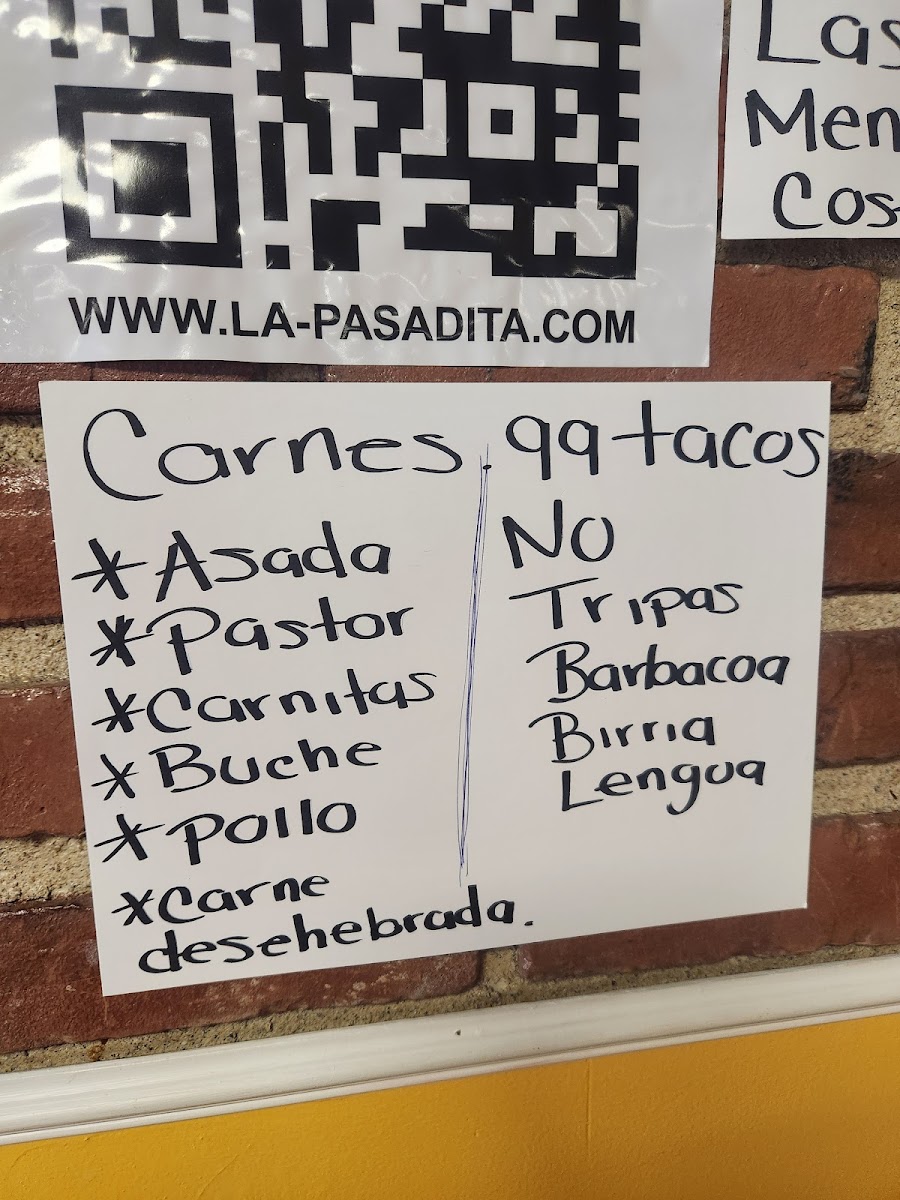 WWW.LA-PASADITA.COM
Las
Men
Cos
Carnes .99 tacos
*Asada
*Pastor
*Carnitas
*Buche
*Pollo
*Carne
desehebrada.
NO
Tripas
Barbacoa
Birria
Lengua